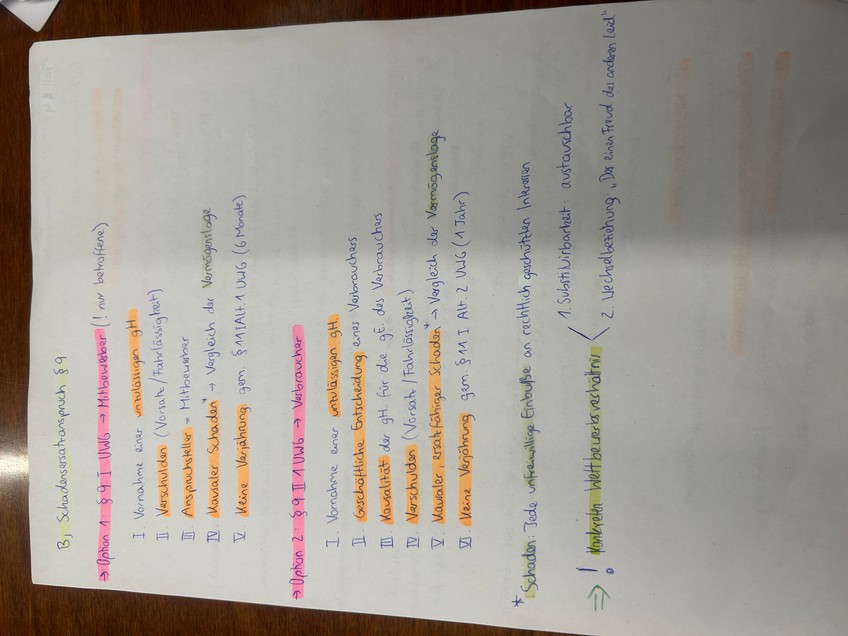 B, Schadensersatzanspruch § 9
→ Option 1: § 9 I UWG → Mitbewerber (! nur betroffene)
I. Vornahme einer unzulässigen gH.
II. Verschulden (Vorsatz/Fahrlässigkeit)
III. Anspruchsteller = Mitbewerber
IV. Kausaler Schaden* → Vergleich der Vermögenslage
V. Keine Verjährung gem. § 11 I Alt. 1 UWG (6 Monate)
→ Option 2: § 9 II 1 UWG → Verbraucher
I. Vornahme einer unzulässigen gH.
II. Geschäftliche Entscheidung eines Verbrauchers
III. Kausalität der gH. für die gE. des Verbrauchers
IV. Verschulden (Vorsatz/Fahrlässigkeit)
V. Kausaler, ersatzfähiger Schaden* → Vergleich der Vermögenslage
VI. Keine Verjährung gem. § 11 I Alt. 2 UWG (1 Jahr)
* Schaden: Jede unfreiwillige Einbuße an rechtlich geschützten Interessen
⇒ ! Konkretes Wettbewerbsverhältnis
1. Substituirbarkeit: austauschbar
2. Wechselbeziehung: „Des einen Freud des anderen Leid"